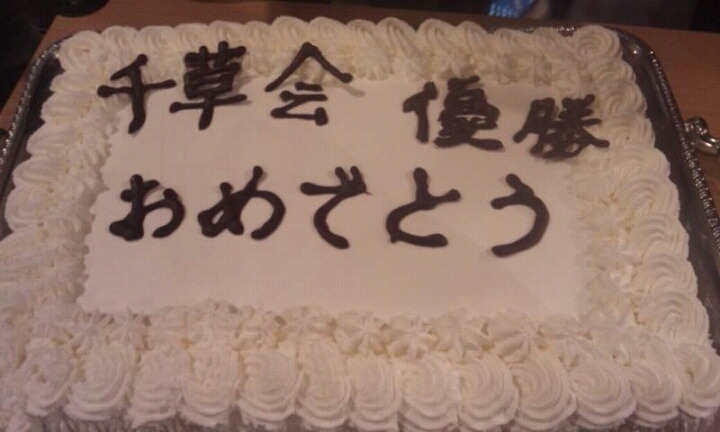 千草会 優勝
おめでとう